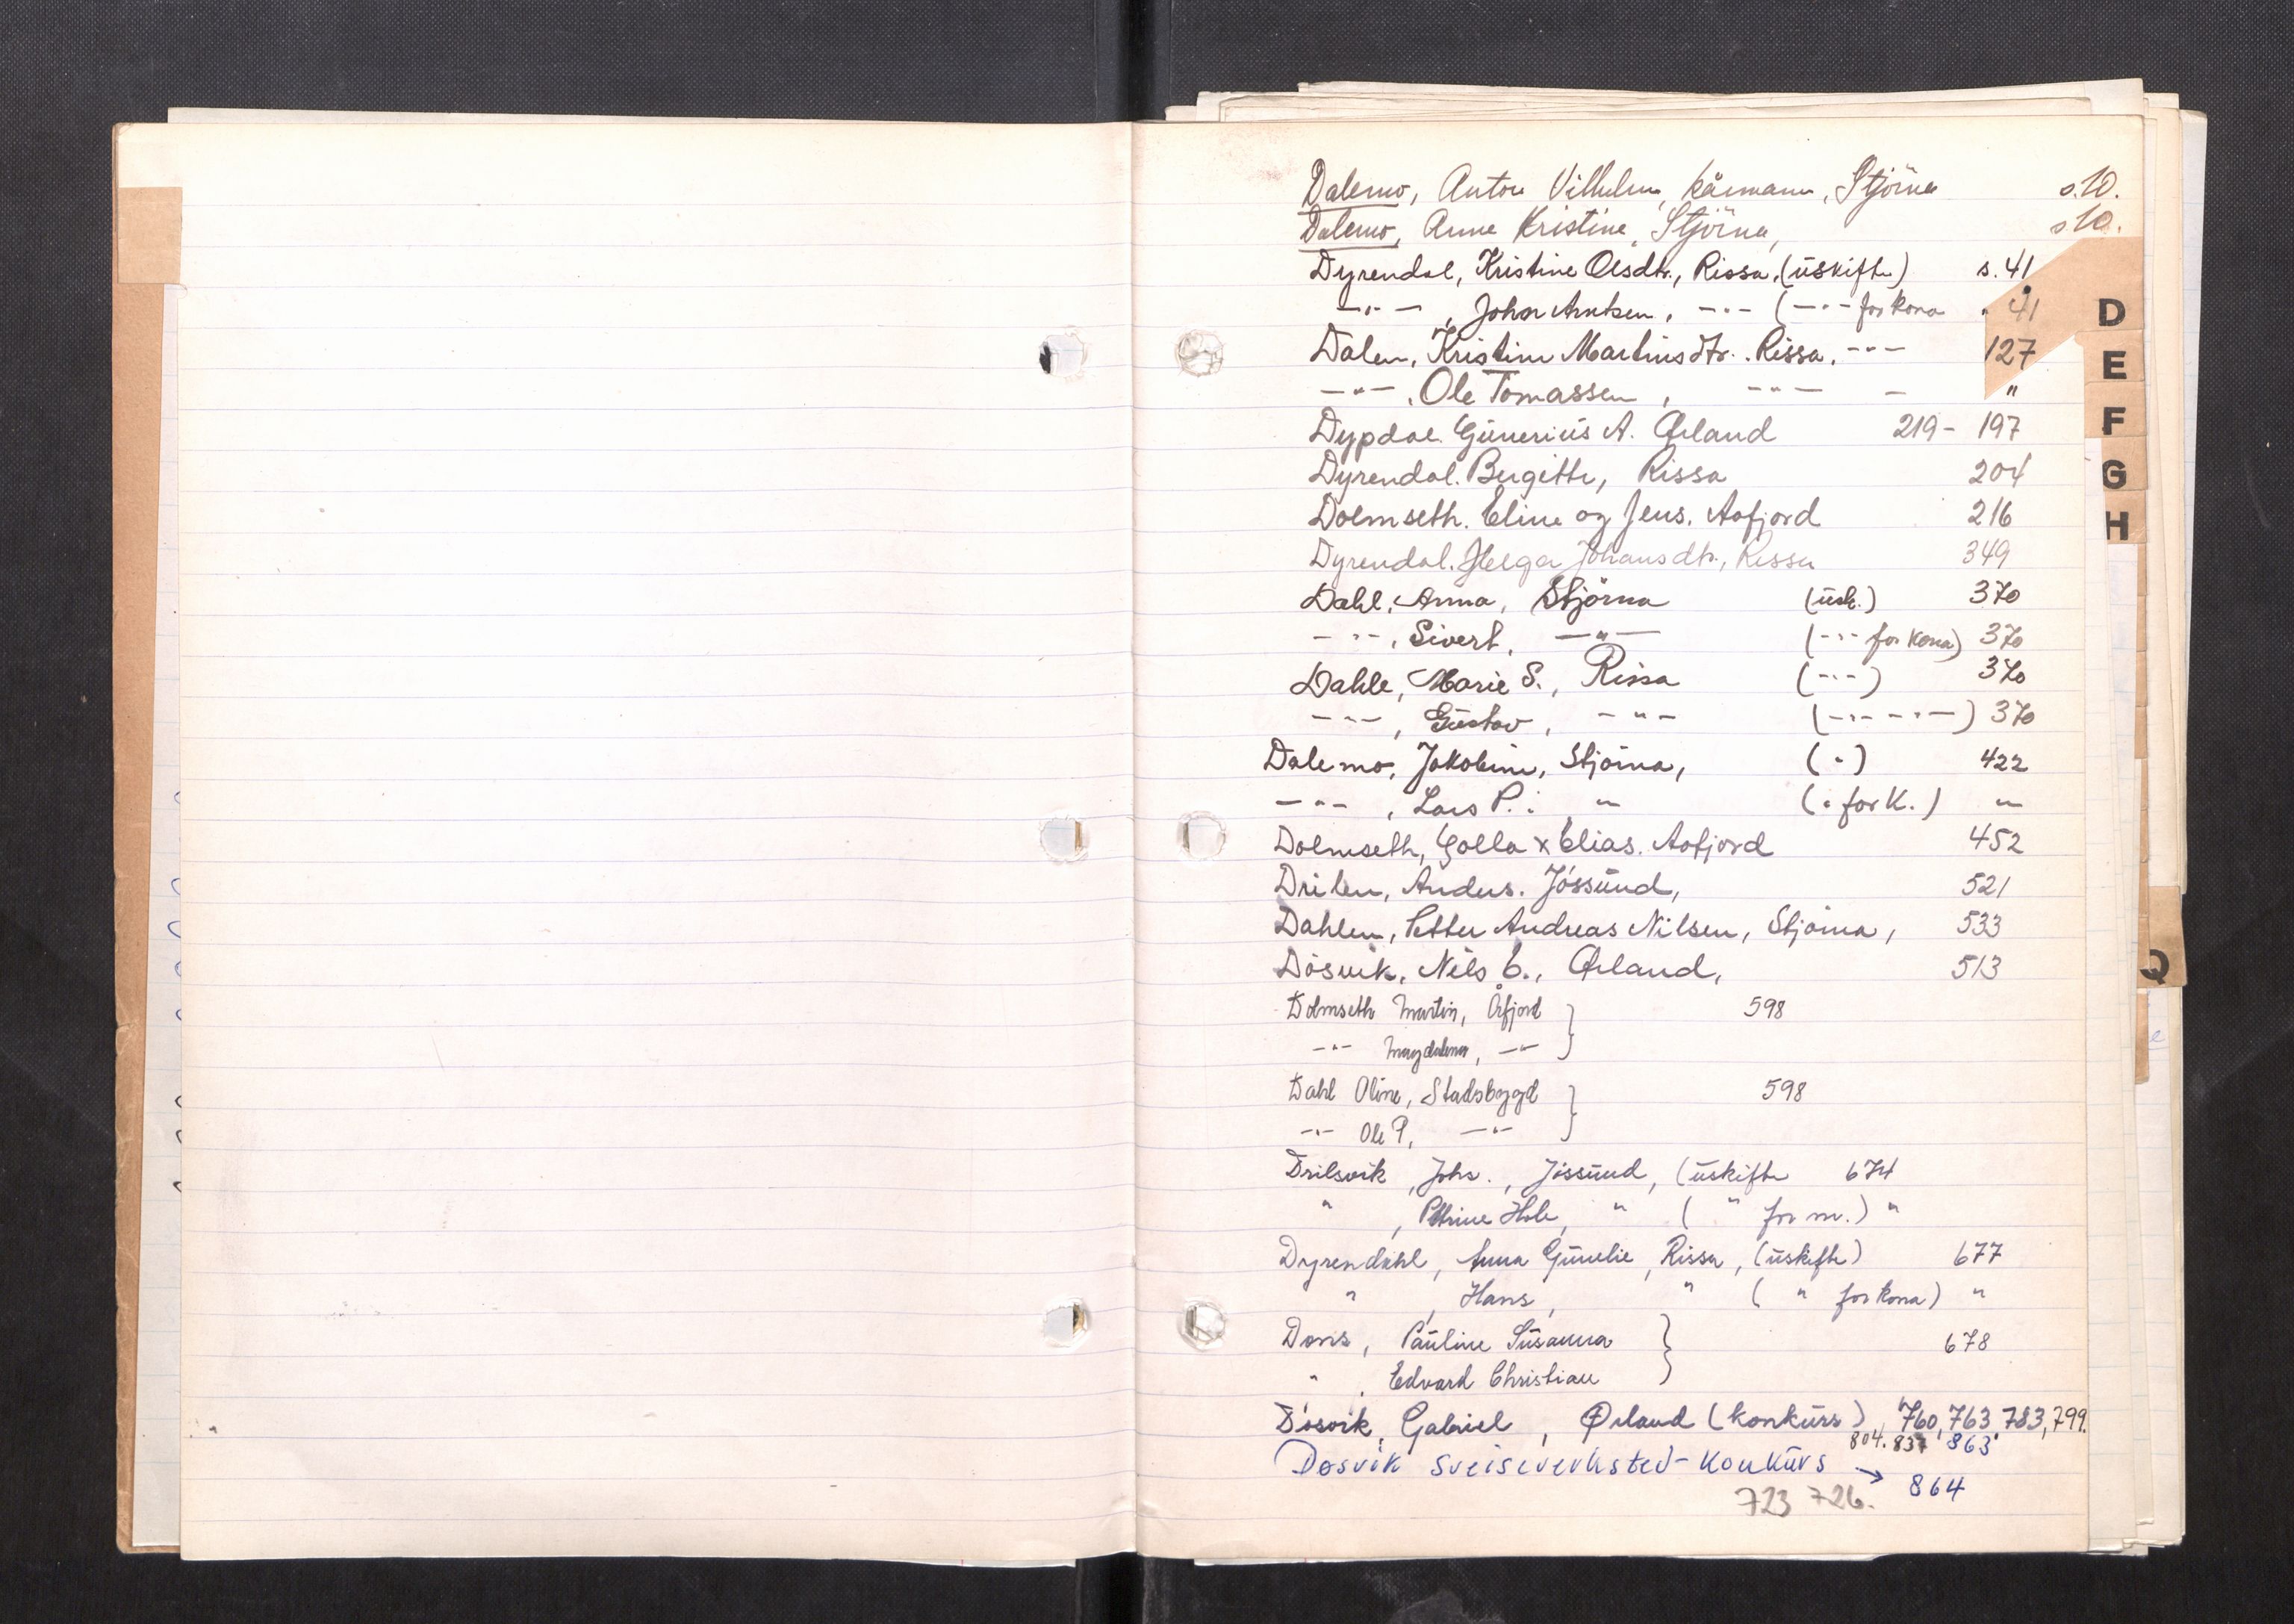 Dalemo, Anton Vilhelm, kårmann, Stjörna s.10.
Dalemo, Anne Kristine, Stjörna, s 10.
Dyrendal, Kristine Olsdtr., Rissa, (uskifte) s. 41
—"— , John Arntsen, —"— (—"— for kona " 41
Dalen, Kristine Martinsdtr. Rissa. —"— 127
—"— . Ole Tomassen , —"— — "
Dypdal. Gunerius A. Ørland 219 - 197
Dyrendal. Bergitte, Rissa 204
Dolmseth. Eline og Jens. Aafjord 216
Dyrendal. Helga Johansdtr., Rissa 349
Dahl, Anna, Stjörna (usk.) 370
—"—, Sivert, —"— (—"— for kona) 370
Dahle, Marie S., Rissa (—"—) 370
—"— , Gustav , —"— (—"—"—) 370
Dalemo, Jakobine, Stjörna, (") 422
—"— , Lars P. : " (" for K.) "
Dolmseth, Golla x Elias. Aafjord 452
Drilen, Anders. Jössund, 521
Dahlen, Petter Andreas Nilsen, Stjörna, 533
Dösvik, Nils E., Ørland, 513
Dolmseth Martin, Åfjord } 598
—"— Magdalena, —"—
Dahl Oline, Stadsbygd } 598
—"— Ole P, —"—
Drilsvik , Johs. , Jössund, (uskifte 674
" , Petrine Hole, " ( " for m.) "
Dyrendahl, Anna Gunelie, Rissa, (uskifte) 677
" , Hans, " ( " for kona) "
Doris, Pauline Susanna } 678
" , Edvard Christian
Dösvik, Gabriel , Ørland (konkurs), 760, 763 783, 799.
804. 837 863
Døsvik sveiseverksted - Konkurs → 864
723 726.
D
E
F
G
H
Q